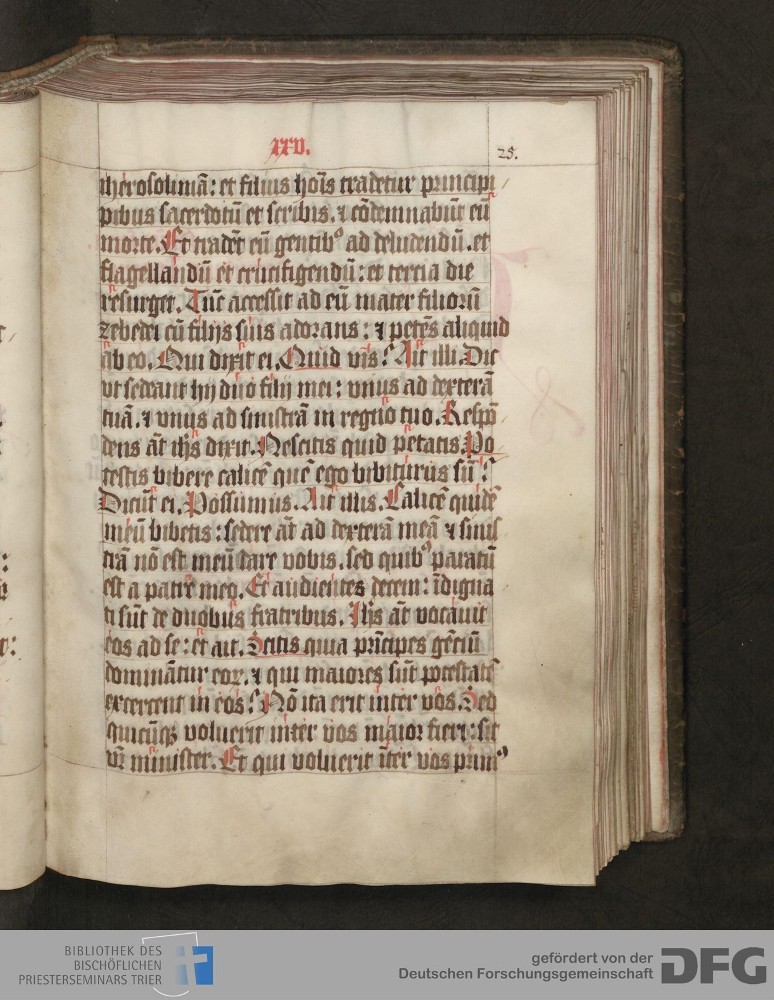 xxv.
25.
iherosolimā: et filius hoīs tradetur principi
pibus sacerdotū et scribis. ⁊ cōdemnabūt eū
morte. Et tradēt eū gentibꝰ ad deludendū. et
flagellandū et crucifigendū: et tercia die
resurget. Tūc accessit ad eū mater filiorū
zebedei cū filijs suis adorans: ⁊ petēs aliquid
ab eo. Qui dixit ei. Quid vīs? Ait illi. Dic
vt sedeant hij duo filij mei: vnus ad dexterā
tuā. ⁊ vnus ad sinistrā in regno tuo. Respō
dens āt ihs dixit. Nescitis quid petatis. Po
testis bibere calicē quē ego bibiturus sū?
Dicūt ei. Possumus. Ait illis. Calicē quidē
meū bibetis: sedere āt ad dexterā meā ⁊ sinis
trā nō est meū dare vobis. sed quibꝰ paratū
est a patre meo. Et audientes decem: īdigna
ti sūt de duobus fratribus. Ihs āt vocauit
eos ad se: et ait. Scitis quia prīcipes gētiū
dominātur eoꝝ. ⁊ qui maiores sūt potestatē
excercent in eos? Nō ita erit inter vos. Sed
quicūqꝫ voluerit inter vos maior fieri: sit
vr̄ minister. Et qui voluerit īter vos primꝰ
BIBLIOTHEK DES
BISCHÖFLICHEN
PRIESTERSEMINARS TRIER
gefördert von der
Deutschen Forschungsgemeinschaft
DFG